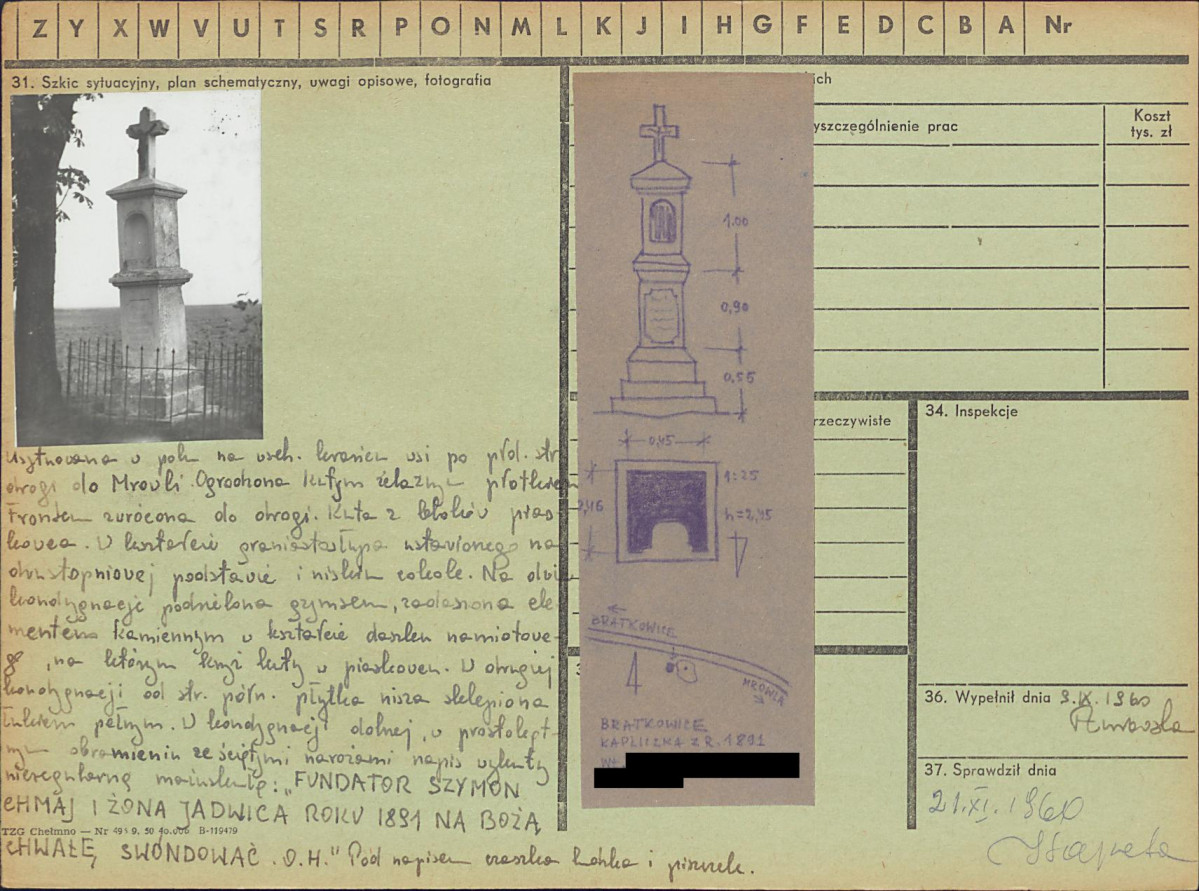 Z Y X W V U T S R P O N M L K J I H G F E D C B A Nr
31. Szkic sytuacyjny, plan schematyczny, uwagi opisowe, fotografia
Usytuowana w polu na wsch. krańcu wsi po płd. str.
drogi do Mrowli. Ogrodzona kutym żelaznym płotkiem
Frontem zwrócona do drogi. Kuta z bloków pias-
kowca. W kształcie graniastosłupa ustawionego na
dwustopniowej podstawie i niskim cokole. Na dwie
kondygnacje podzielona gzymsem, zadaszona ele-
mentem kamiennym w kształcie daszku namiotowe-
go, na którym krzyż kuty w piaskowcu. W drugiej
kondygnacji od str. półn. płytka nisza sklepiona
łukiem pełnym. W kondygnacji dolnej, w prostokąt-
nym obramieniu ze ściętymi narożami napis wykuty
nieregularną majuskułą: „FUNDATOR SZYMON
CHMAJ I ŻONA JADWICA ROKU 1891 NA BOŻĄ
TZG Chełmno — Nr 50 B-119479
CHWAŁĘ SWONDOWAĆ. O.H." Pod napisem czaszka ludzka i piszczele.
1.00
0,90
0,55
0,45
1:25
h=2,45
BRATKOWICE
MROWLA
BRATKOWICE
KAPLICZKA Z R. 1891
ich
yszczególnienie prac
Koszt
tys. zł
rzeczywiste
34. Inspekcje
36. Wypełnił dnia 9.IX.1960
37. Sprawdził dnia
21.XI.1960